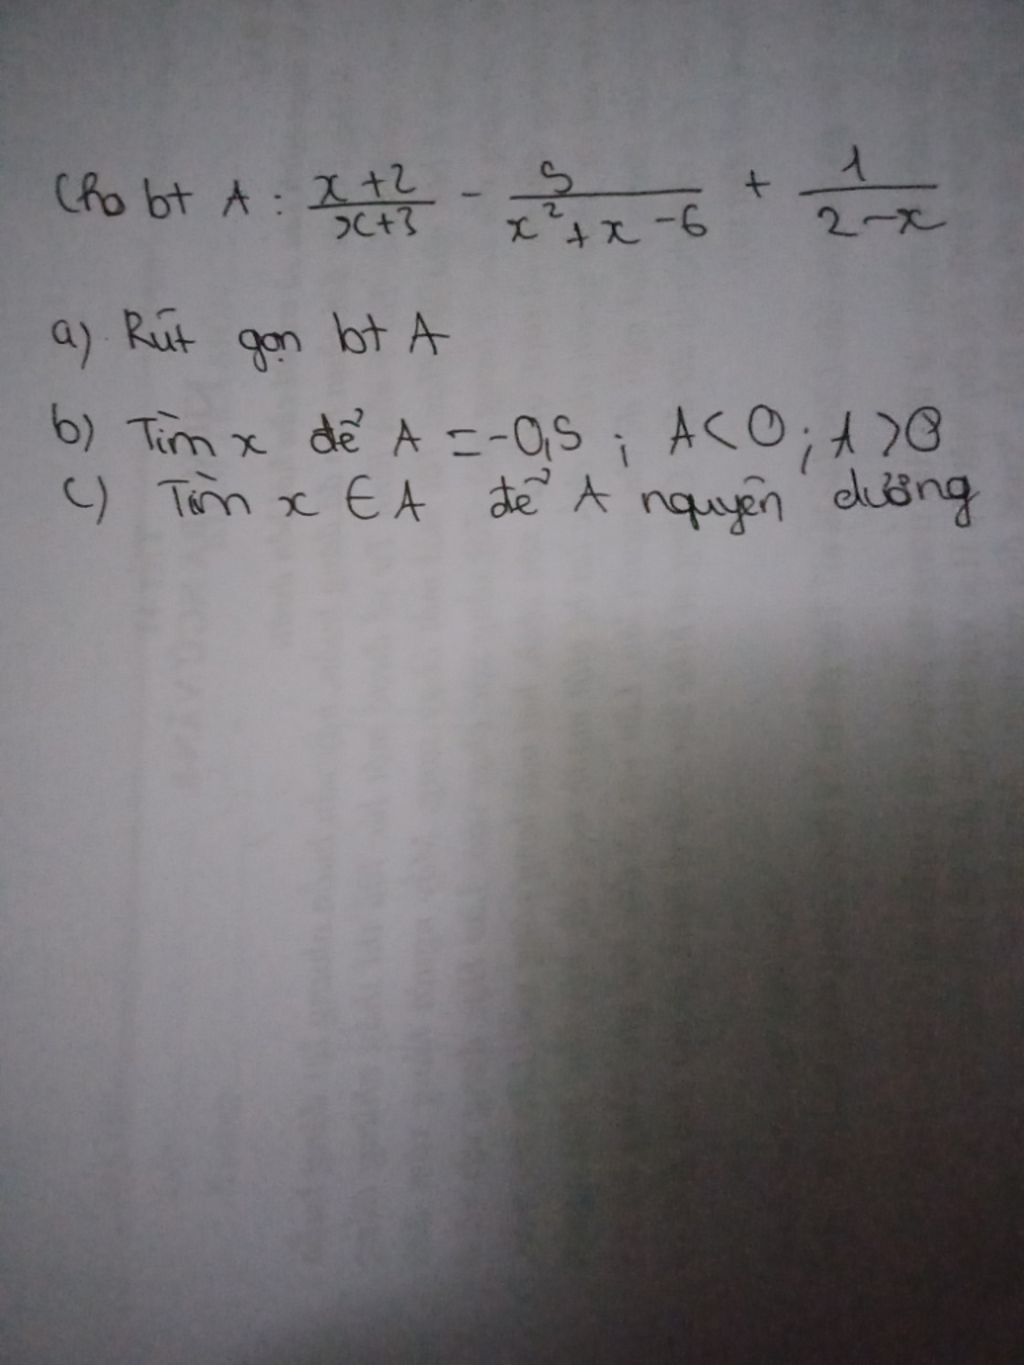 Cho bt A : \frac{x+2}{x+3} - \frac{5}{x^2+x-6} + \frac{1}{2-x}
a) Rút gọn bt A
b) Tìm x để A = -0,5 ; A < 0 ; A > 0
c) Tìm x ∈ A để A nguyên dương